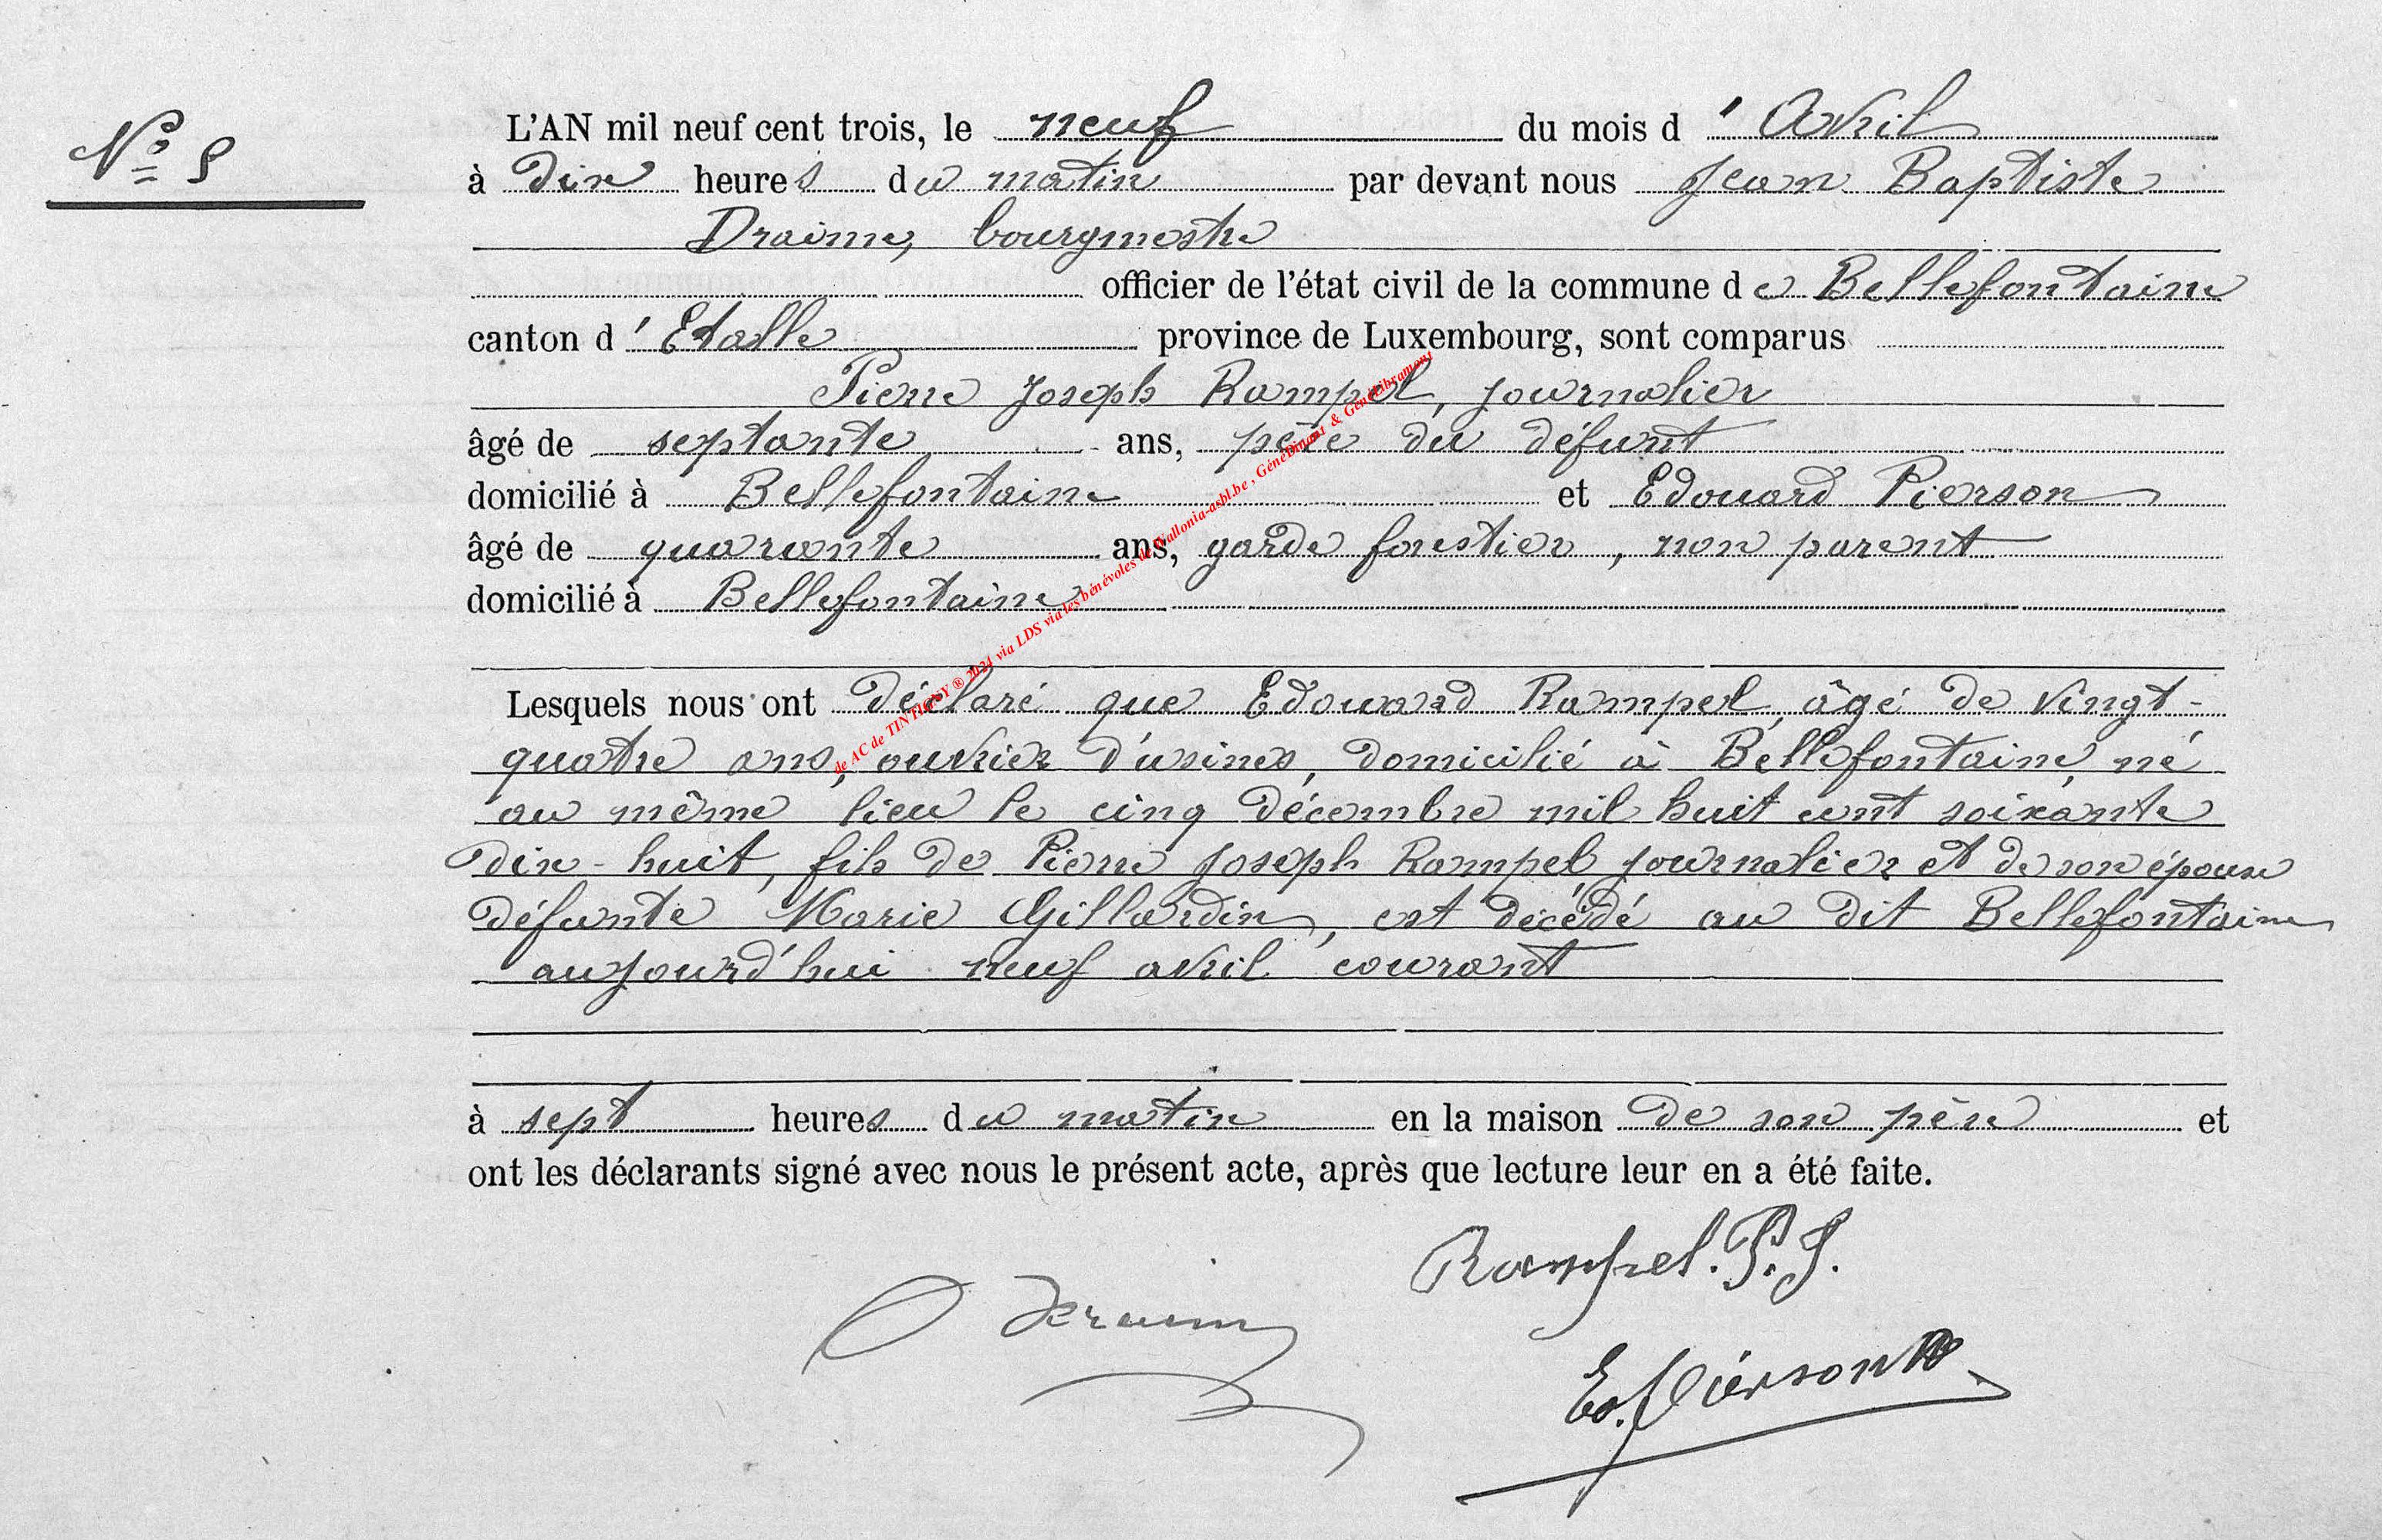 N° 5
L'AN mil neuf cent trois, le neuf du mois d' Avril
à dix heures du matin par devant nous Jean Baptiste
Draime, bourgmestre
officier de l'état civil de la commune de Bellefontaine
canton d' Etalle province de Luxembourg, sont comparus
Pierre Joseph Rampel, journalier
âgé de septante ans, père du défunt
domicilié à Bellefontaine et Edouard Pierson
âgé de quarante ans, garde forestier, non parent
domicilié à Bellefontaine
Lesquels nous ont déclaré que Edouard Rampel, âgé de vingt-
quatre ans, ouvrier d'usines, domicilié à Bellefontaine, né
au même lieu le cinq décembre mil huit cent soixante
dix-huit, fils de Pierre Joseph Rampel journalier et de son épouse
défunte Marie Gillardin, est décédé au dit Bellefontaine
aujourd'hui neuf avril courant
à sept heures du matin en la maison de son père et
ont les déclarants signé avec nous le présent acte, après que lecture leur en a été faite.
Rampel. P. J.
Draime
Ed. Pierson
de AC de TINTIGNY ® 2024 via LDS via les bénévoles de Wallonia-asbl.be , GénéDinant & GénéLibramont